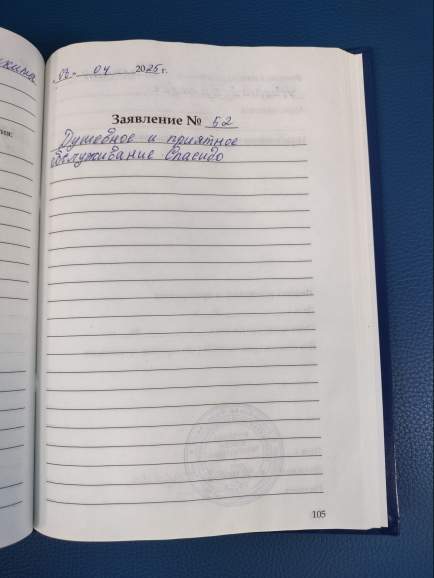 кина
„03" 04 2025 г.
Заявление № 52
Душевное и приятное
обслуживание Спасибо
105